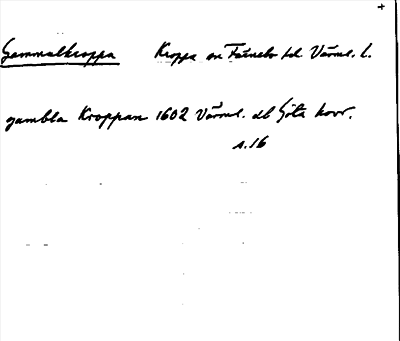 Gammalkroppa Kroppa sn Färnebo hd Värml. l.
gambla Kroppan 1602 Värml. dl Göta hovr.
s. 16